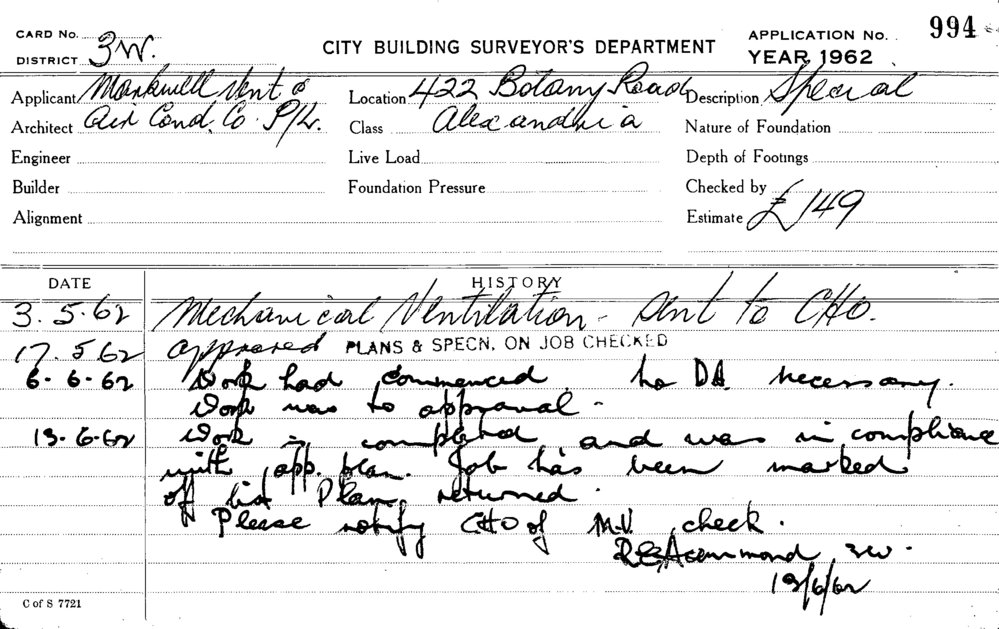 CARD No.
DISTRICT 3W.
CITY BUILDING SURVEYOR'S DEPARTMENT
APPLICATION No. 994
YEAR 1962
Applicant Markwell Vent &
Architect Air Cond. Co. P/L.
Engineer
Builder
Alignment
Location 422 Botany Road
Class Alexandria
Live Load
Foundation Pressure
Description Special
Nature of Foundation
Depth of Footings
Checked by
Estimate £149
DATE HISTORY
3.5.62 Mechanical Ventilation - Sent to CHO.
17.5.62 approved PLANS & SPECN. ON JOB CHECKED
6-6-62 Work had commenced, no DA necessary.
Work was to approval -
13-6-62 Work is completed and was in compliance
with app. plan. Job has been marked
of list Plan returned.
Please notify CHO of M.V. check.
3W.
13/6/62
C of S 7721